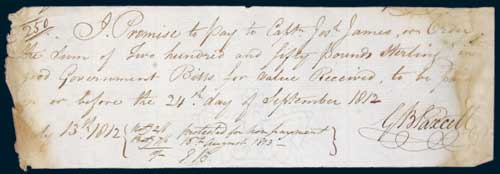 250
I Promise to pay to Captn. Josh. James, or Order
the Sum of Two hundred and fifty pounds Sterling in
good Government Bills for Value Received, to be paid
on or before the 24th. day of September 1812
13th. 1812 protested for non payment
15th August 1813